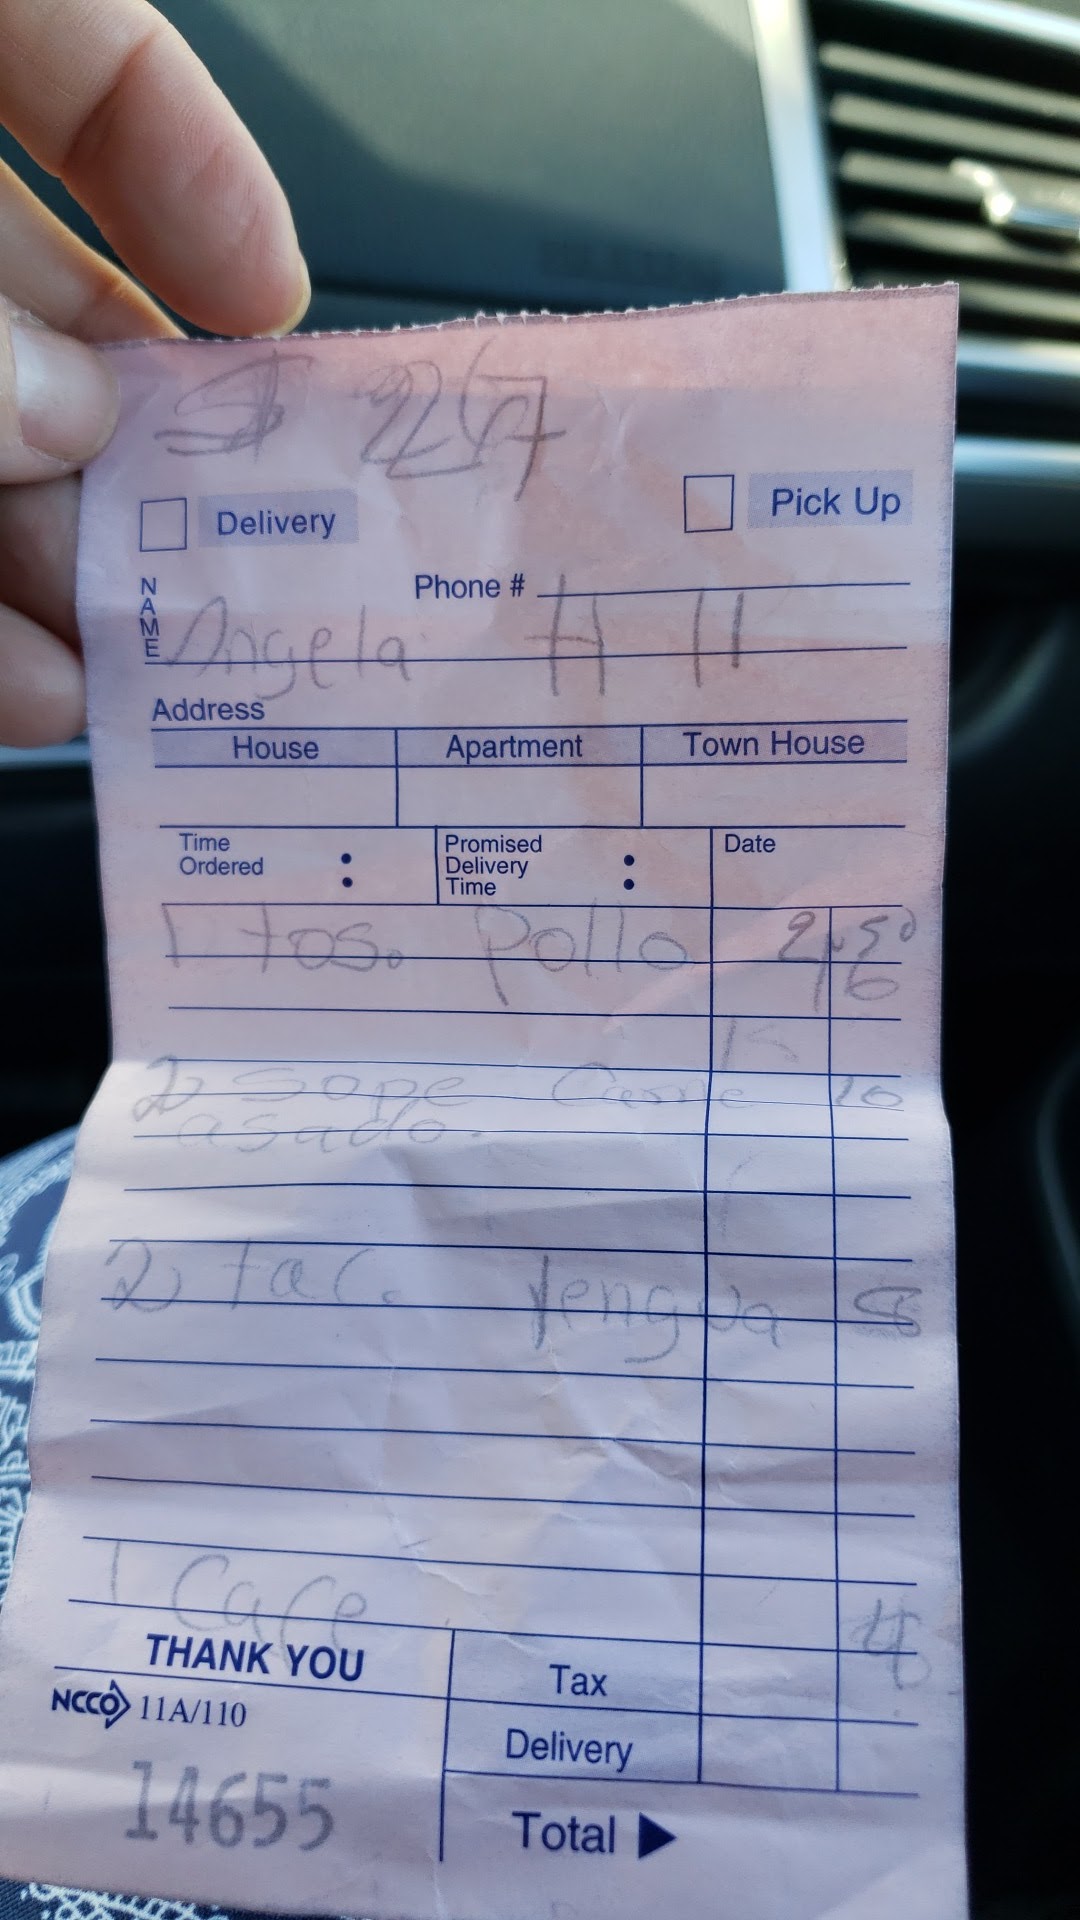 $ 267
Delivery Pick Up
Phone #
NAME Angela H 11
Address
House Apartment Town House
Time Ordered : Promised Delivery Time : Date
1 tos. Pollo 2.50
2 Sope Carne 10
asado.
2 tac. lengua 8
1 Cafe 4
THANK YOU Tax
NCCO 11A/110 Delivery
14655 Total